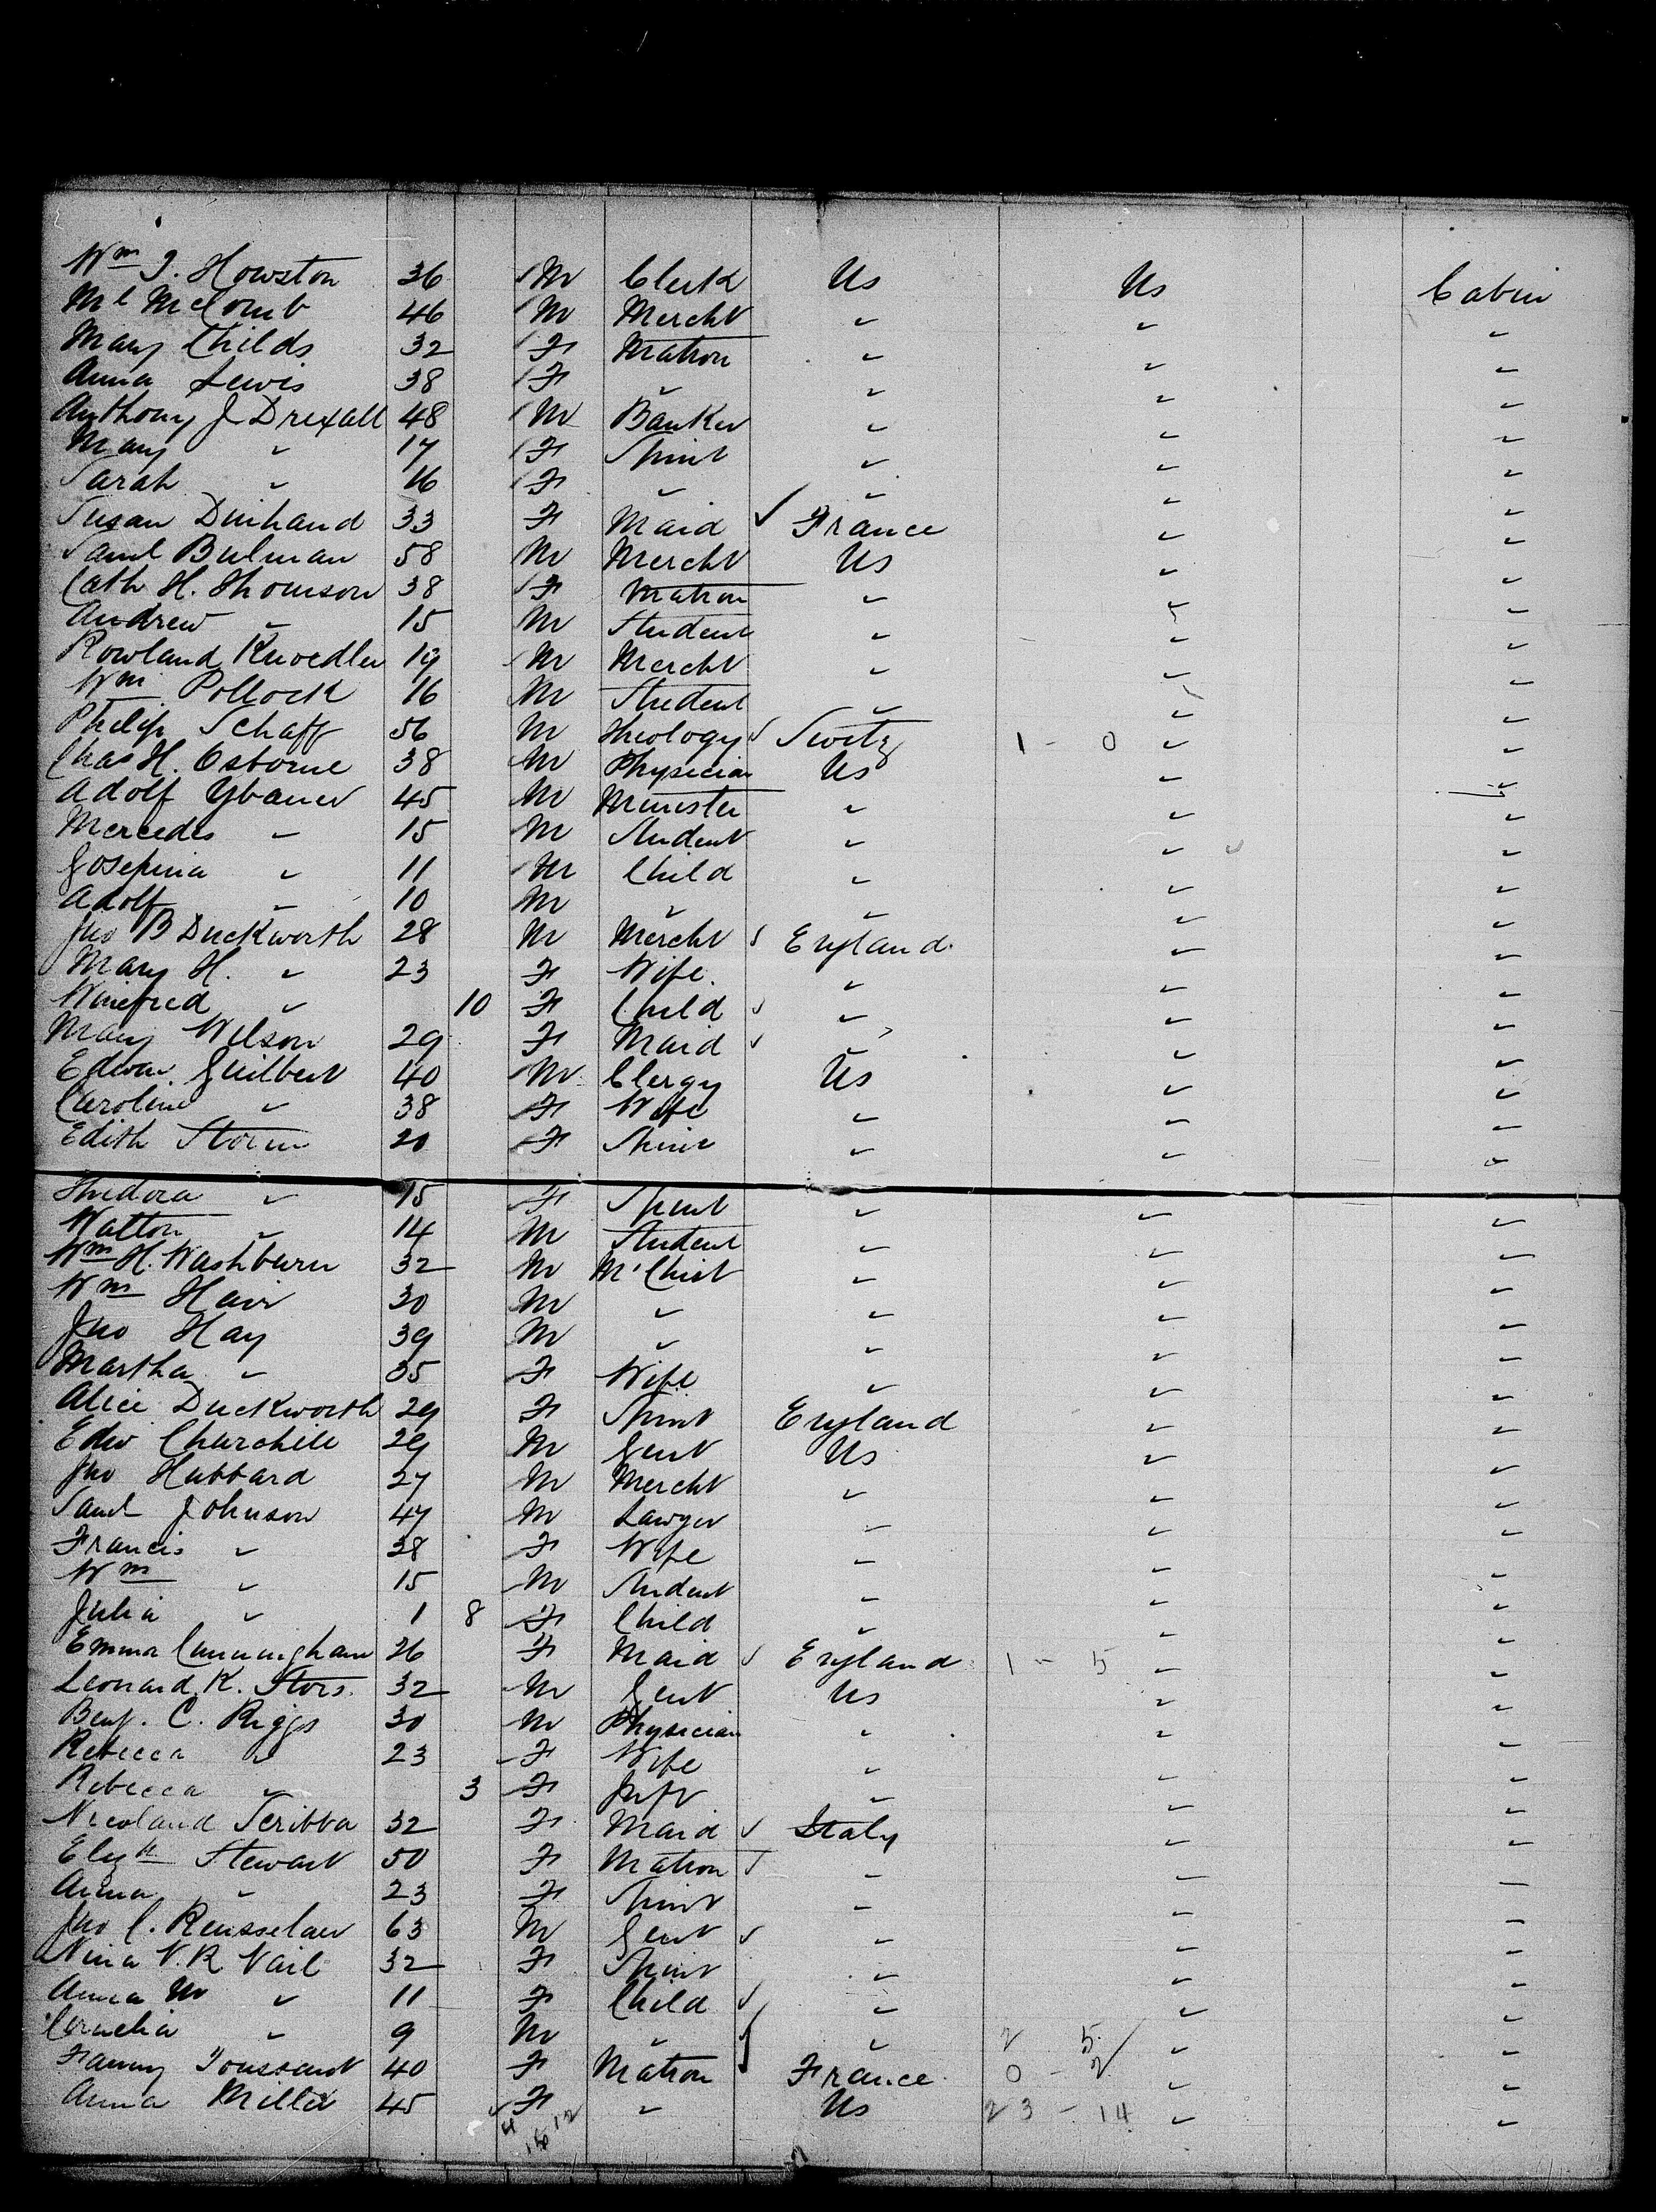 Wm J. Howston 36 M Clerk Us Us Cabin
Ml McComb 46 M Mercht " " "
Mary Childs 32 F Matron " " "
Anna Lewis 38 F " " " "
Anthony J Drexall 48 M Banker " " "
Mary " 17 F Spinst " " "
Sarah " 16 F " " " "
Susan 33 F Maid ✓ France " "
Saml Bulman 58 M Mercht Us " "
Cath H. Thomson 38 F Matron " " "
Andrew " 15 M Student " " "
Rowland Knoedler 19 M Mercht " " "
Wm Pollock 16 M Student " " "
Philip Schaff 56 M Theology ✓ Switz 1 - 0 " "
Chas H. Osborne 38 M Physician Us " "
Adolf 45 M Minister " " "
Mercedes " 15 M Student " " "
Josephina " 11 M Child " " "
Adolf " 10 M " " " "
Jno B Duckworth 28 M Mercht ✓ England " "
Mary H. " 23 F Wife " " "
Winefred " 10 F Child ✓ " " "
Mary Wilson 29 F Maid ✓ " " "
Edwar Guilbert 40 M Clergy Us " "
Caroline " 38 F Wife " " "
Edith Storm 20 F Spins " " "
Thedora " 15 F Spinst " " "
Walton " 14 M Student " " "
Wm H. Washburn 32 M " " "
Wm Hair 30 M " " " "
Jno Hay 39 M " " " "
Martha " 35 F Wife " " "
Alice Duckworth 29 F Spinst England " "
Edw Churchill 29 M Gent Us " "
Jno Hubbard 27 M Mercht " " "
Saml Johnson 47 M Lawyer " " "
Francis " 38 F Wife " " "
Wm " 15 M Student " " "
Julia " 1 8 F Child " " "
Emma Cunningham 26 F Maid ✓ England 1 - 5 " "
Leonard K. Stors 32 M Gent Us " "
Benj. C. Riggs 30 M Physician " " "
Rebecca " 23 F Wife " " "
Rebecca " 3 F Inft " " "
Scribba 32 F Maid ✓ Italy " "
Elizth Stewart 50 F Matron ✓ " " "
Anna " 23 F Spinst " " "
Jno C. Rensselaer 63 M Gent ✓ " " "
Nina V. R Vail 32 F Spinst " " "
Anna M " 11 F Child ✓ " " "
Cornelia " 9 M " ✓ " 2 5 " "
Fanny Toussant 40 F Matron France 0 - 2 " "
Anna Miller 45 ✓ F " Us 23 - 14 " "
4 16 12